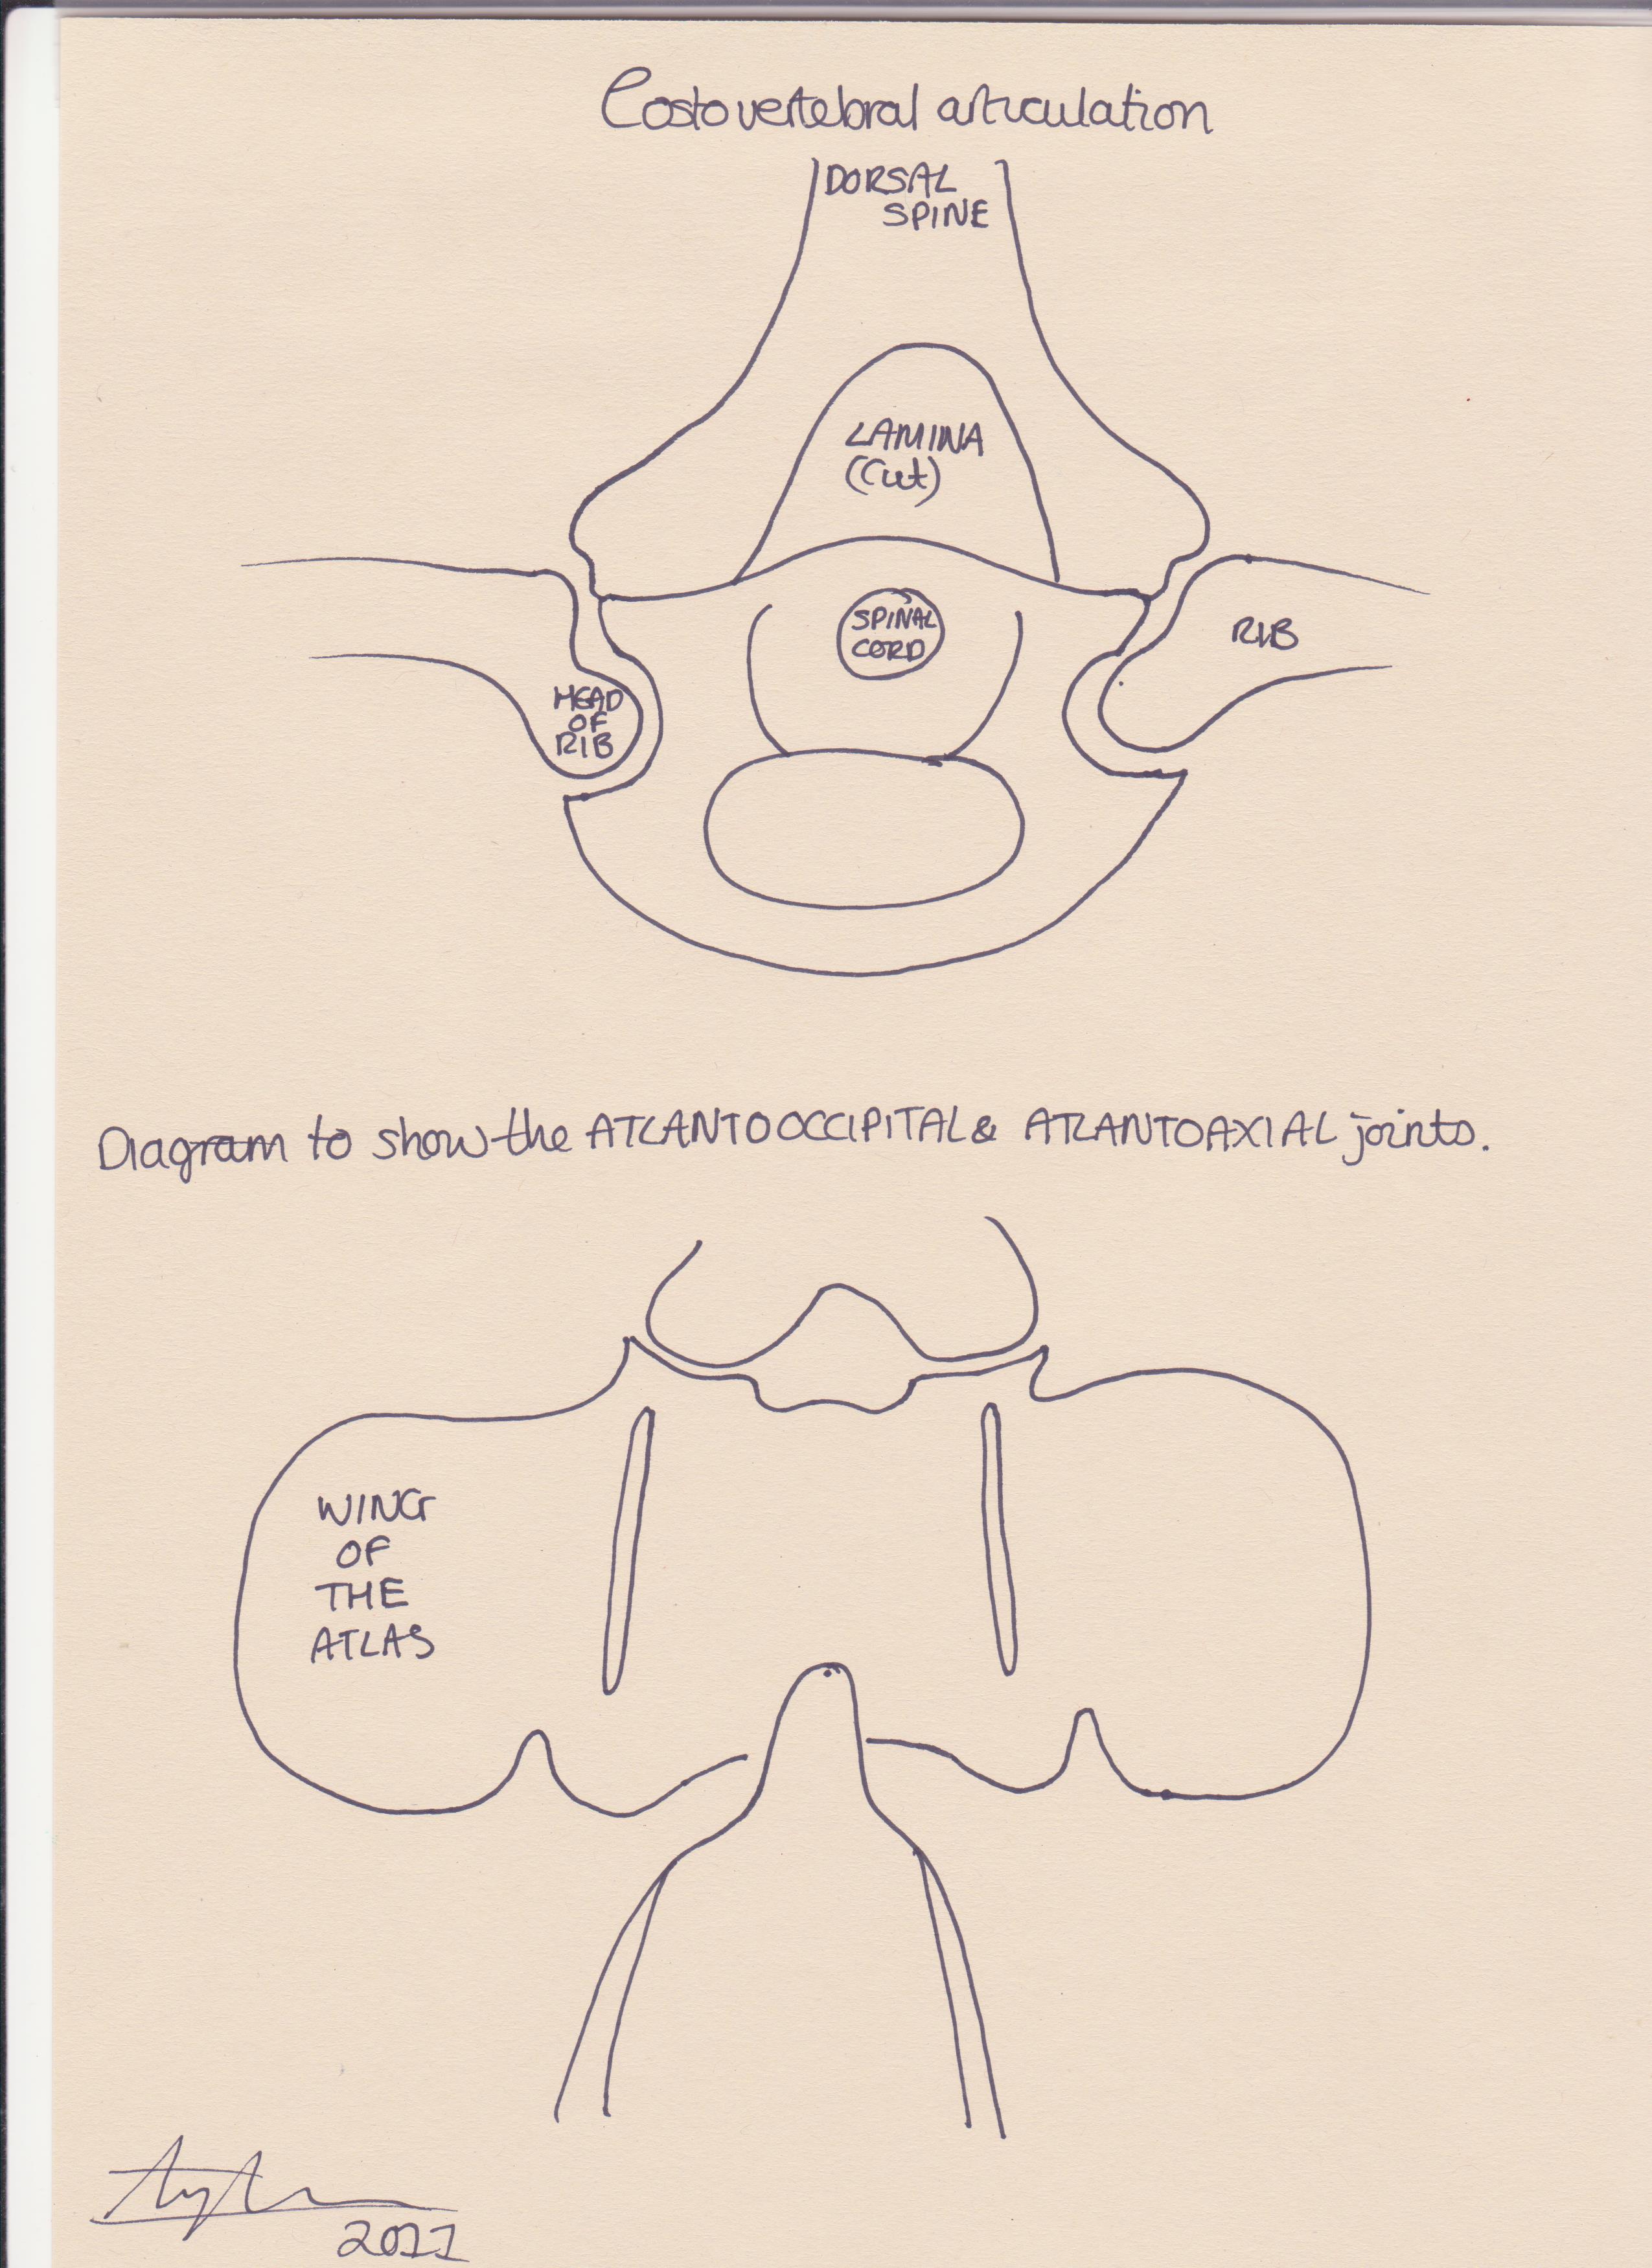 Costovertebral articulation
DORSAL
SPINE
LAMINA
(Cut)
SPINAL
CORD
RIB
HEAD
OF
RIB
Diagram to show the ATLANTOOCCIPITAL & ATLANTOAXIAL joints.
WING
OF
THE
ATLAS
2011